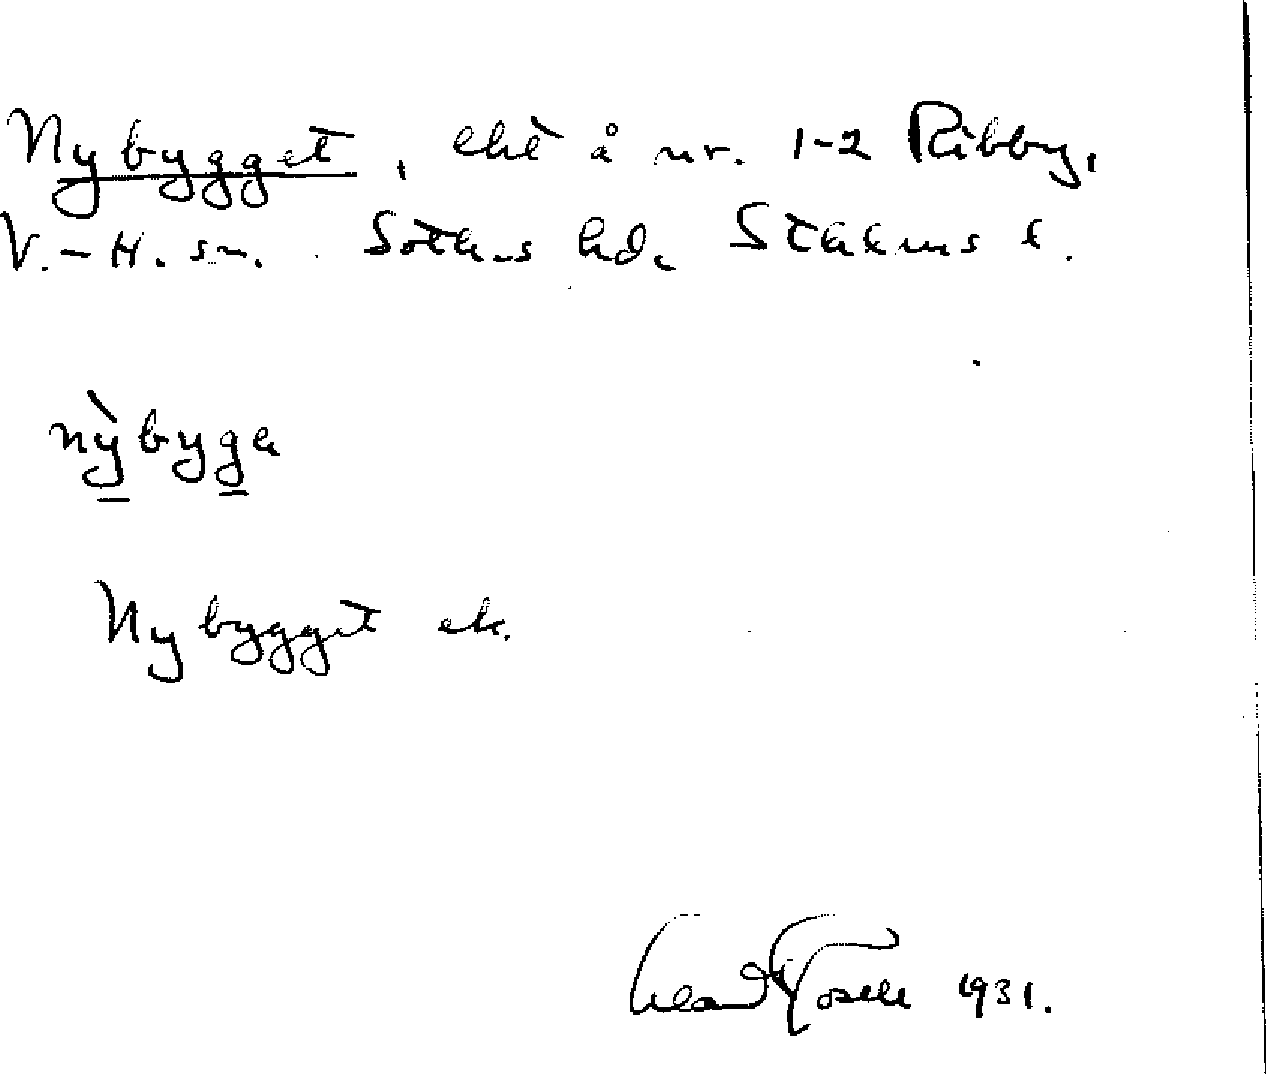 Nybygget, lht å nr. 1-2 Ribby,
V.-H. sn. Soth.s hd. Sthlms l.
nỳbyga
Nybygget ek.
1931.